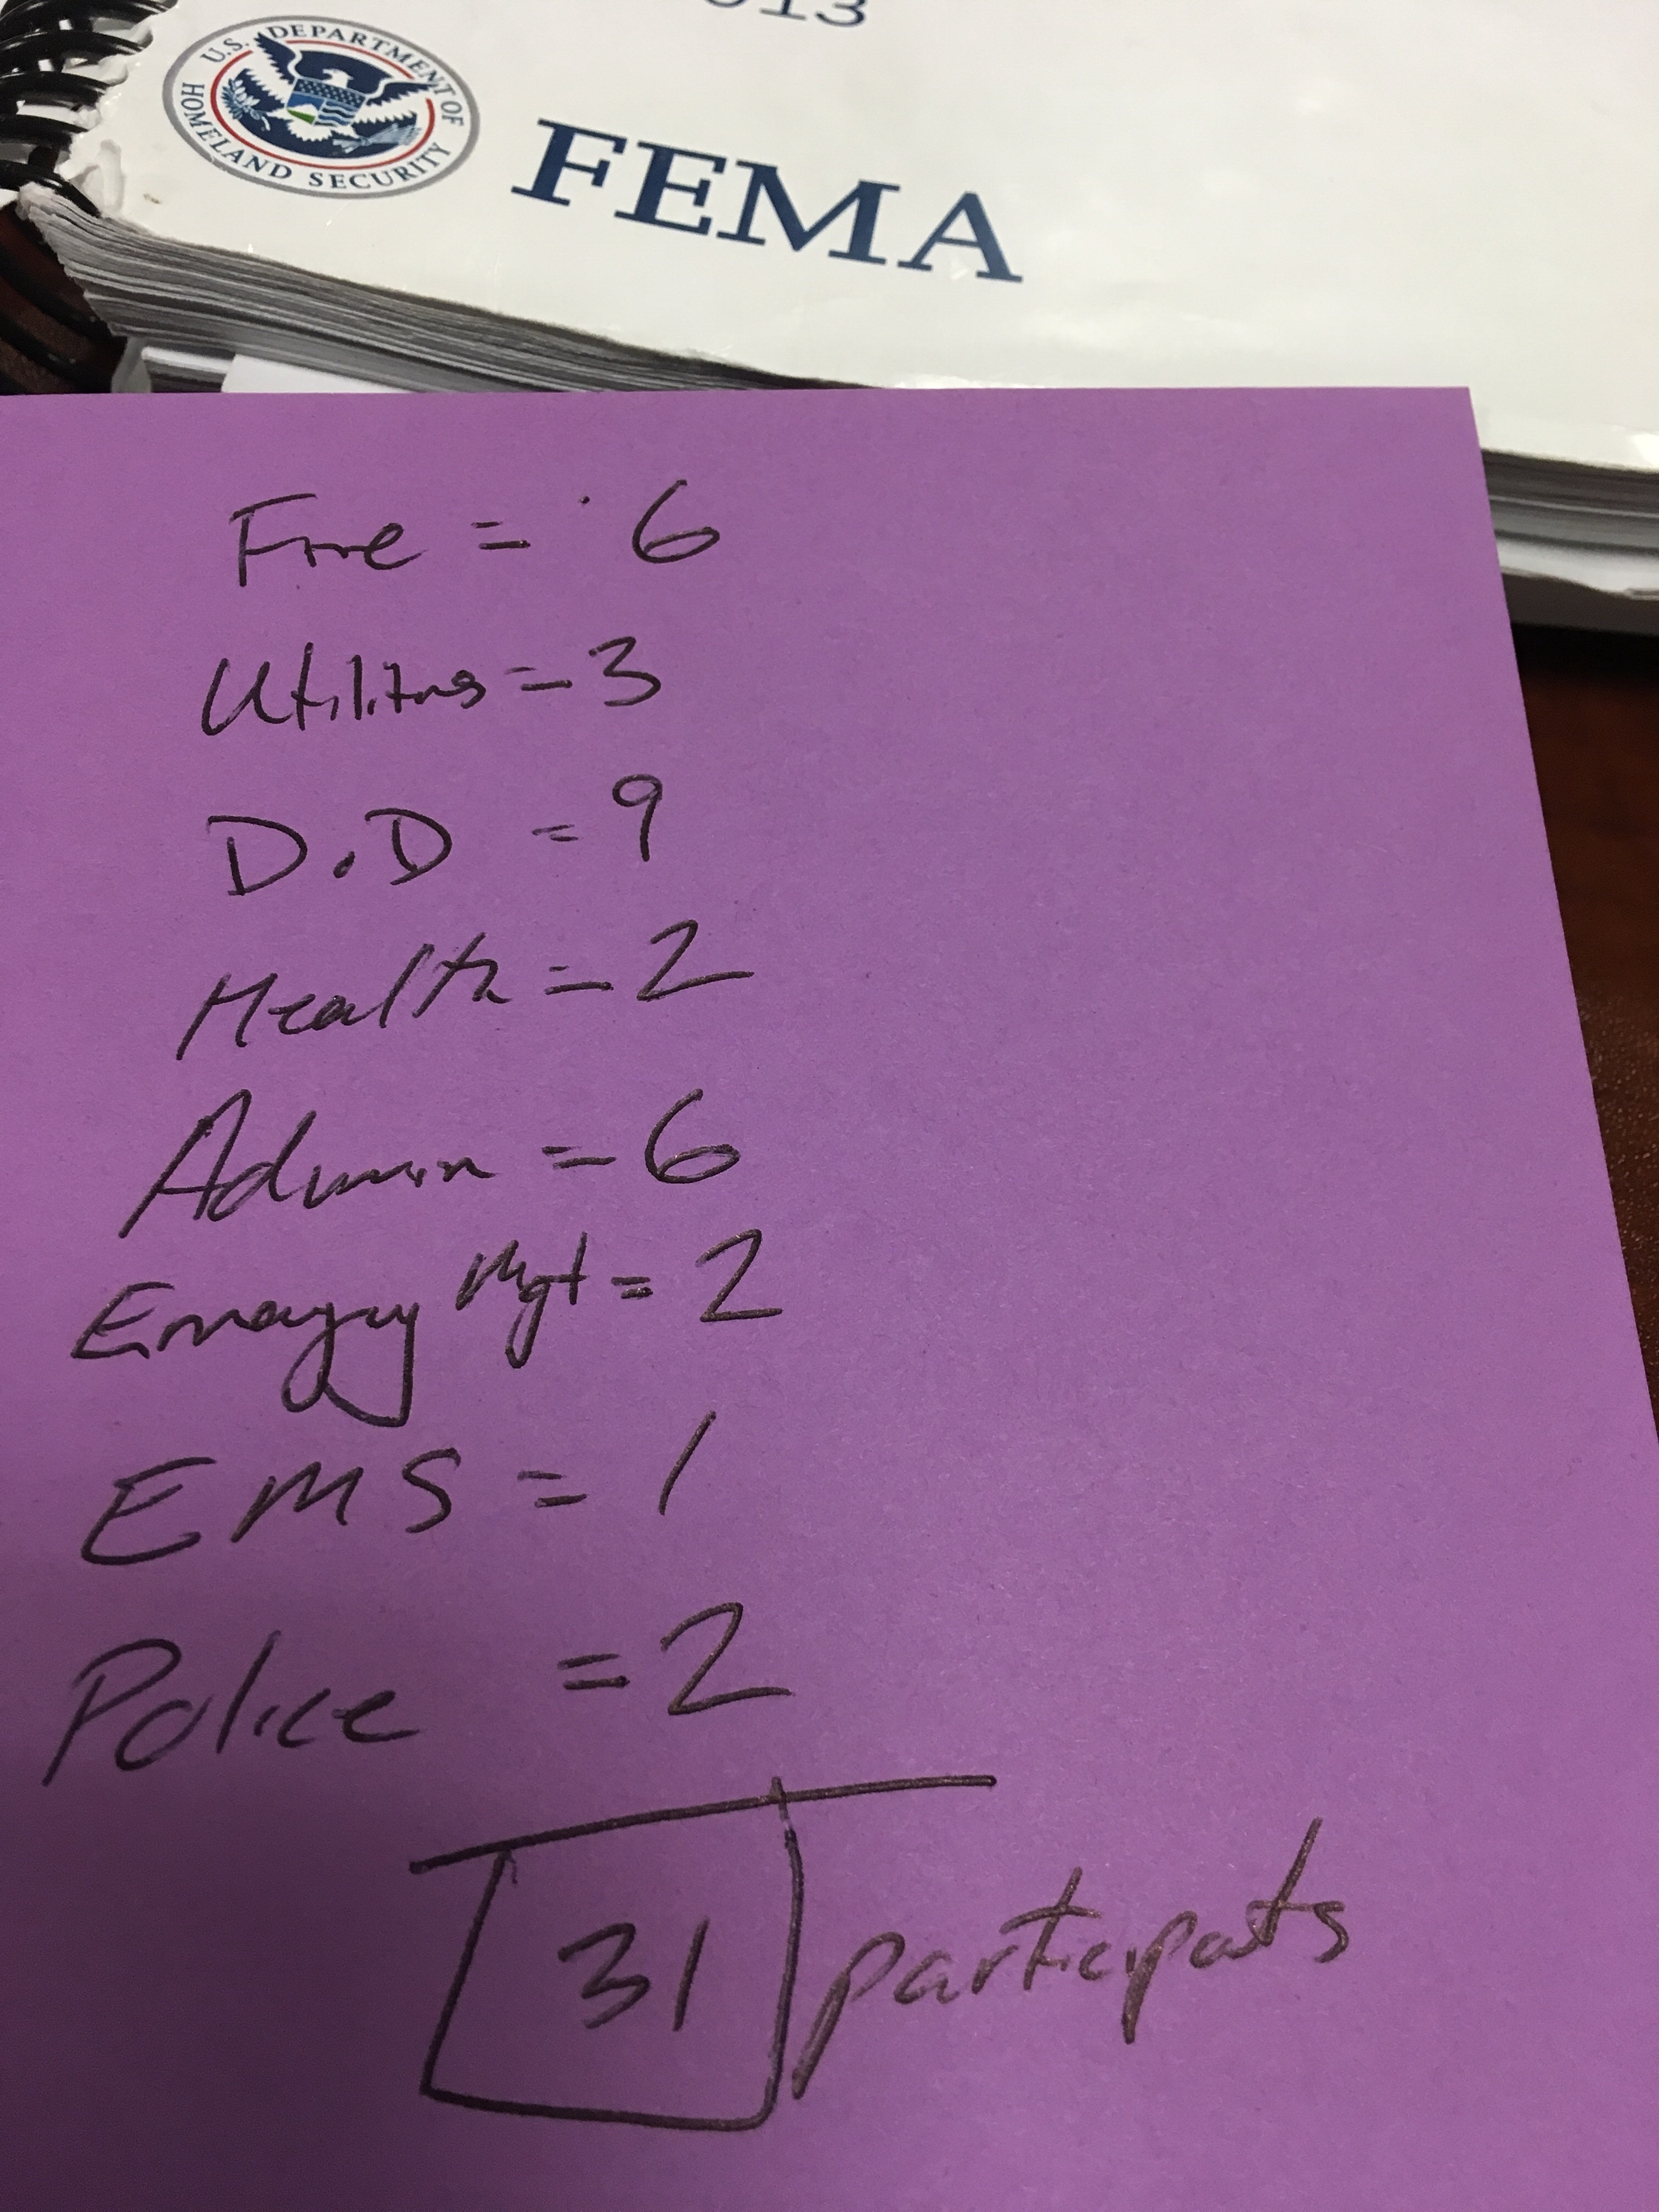 U.S. DEPARTMENT OF HOMELAND SECURITY
FEMA
Fire = 6
Utilities = 3
D.D = 9
Health = 2
Admin = 6
Emergency Mgt = 2
EMS = 1
Police = 2
31 participants